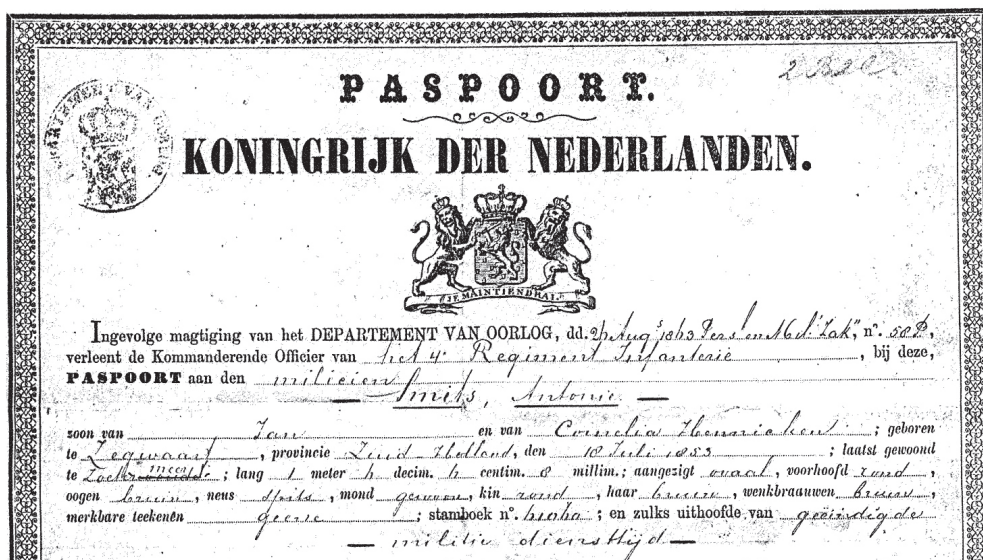 PASPOORT.
KONINGRIJK DER NEDERLANDEN.
JE MAINTIENDRAI
Ingevolge magtiging van het DEPARTEMENT VAN OORLOG, dd. Aug 1863 Pers en Mil: Zak", nº. 58P,
verleent de Kommanderende Officier van het 4e Regiment Infanterie, bij deze,
PASPOORT aan den milicien
— Smits, Antonie —
zoon van Jan en van Cornelia ; geboren
te Zegwaart, provincie Zuid Holland, den 18 Juli 1853 ; laatst gewoond
te Zoetermeer ; lang 1 meter decim. centim. 8 millim.; aangezigt ovaal, voorhoofd rond,
oogen bruin, neus spits, mond gewoon, kin rond, haar bruin, wenkbraauwen bruin,
merkbare teekenen geene ; stamboek nº. ; en zulks uithoofde van geëindigde
— militie diensttijd —